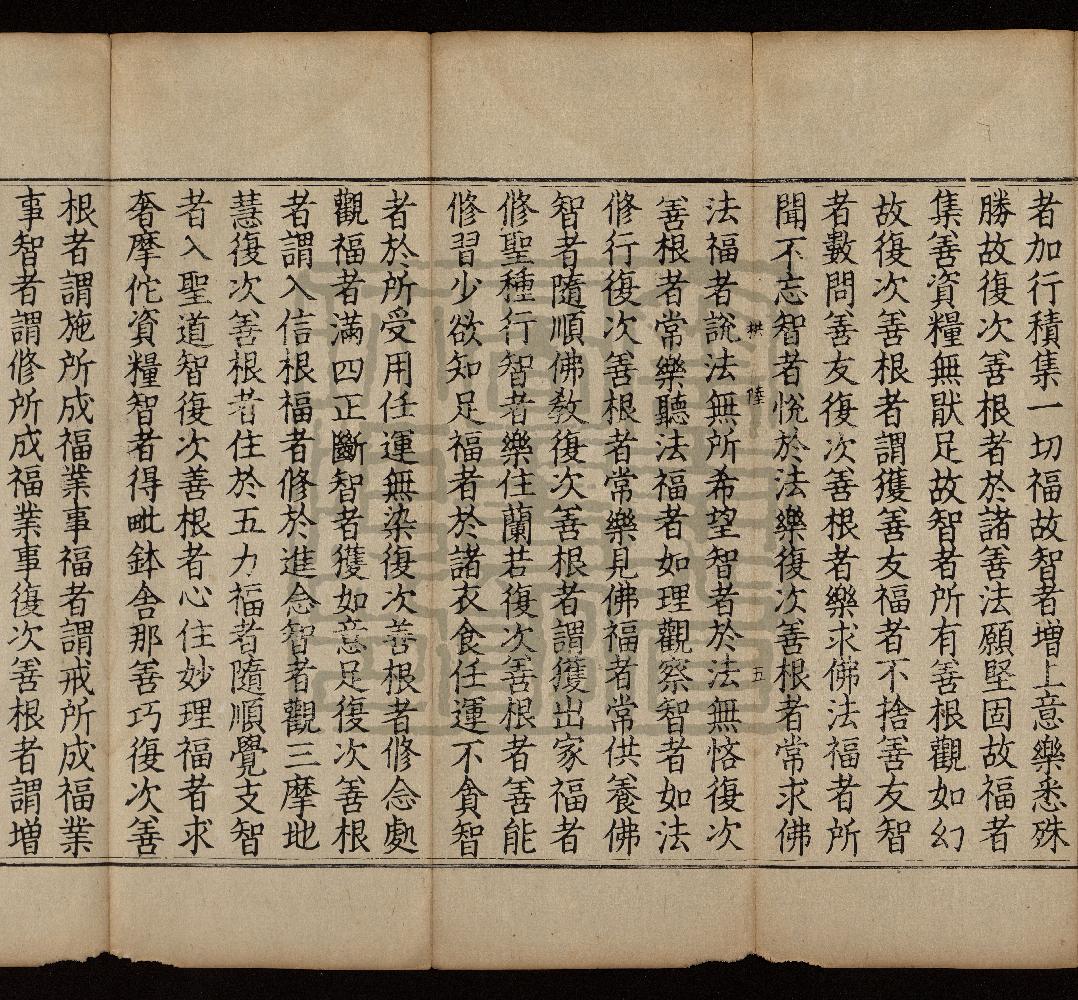 者加行積集一切福故智者增上意樂悉殊
勝故復次善根者於諸善法願堅固故福者
集善資糧無猒足故智者所有善根觀如幻
故復次善根者謂獲善友福者不捨善友智
者數問善友復次善根者樂求佛法福者所
聞不忘智者悅於法樂復次善根者常求佛
拱 陸 五
法福者說法無所希望智者於法無悋復次
善根者常樂聽法福者如理觀察智者如法
修行復次善根者常樂見佛福者常供養佛
智者隨順佛敎復次善根者謂獲出家福者
修聖種行智者樂住蘭若復次善根者善能
修習少欲知足福者於諸衣食任運不貪智
者於所受用任運無染復次善根者修念處
觀福者滿四正斷智者獲如意足復次善根
者謂入信根福者修於進念智者觀三摩地
慧復次善根者住於五力福者隨順覺支智
者入聖道智復次善根者心住妙理福者求
奢摩佗資糧智者得毗鉢舍那善巧復次善
根者謂施所成福業事福者謂戒所成福業
事智者謂修所成福業事復次善根者謂增